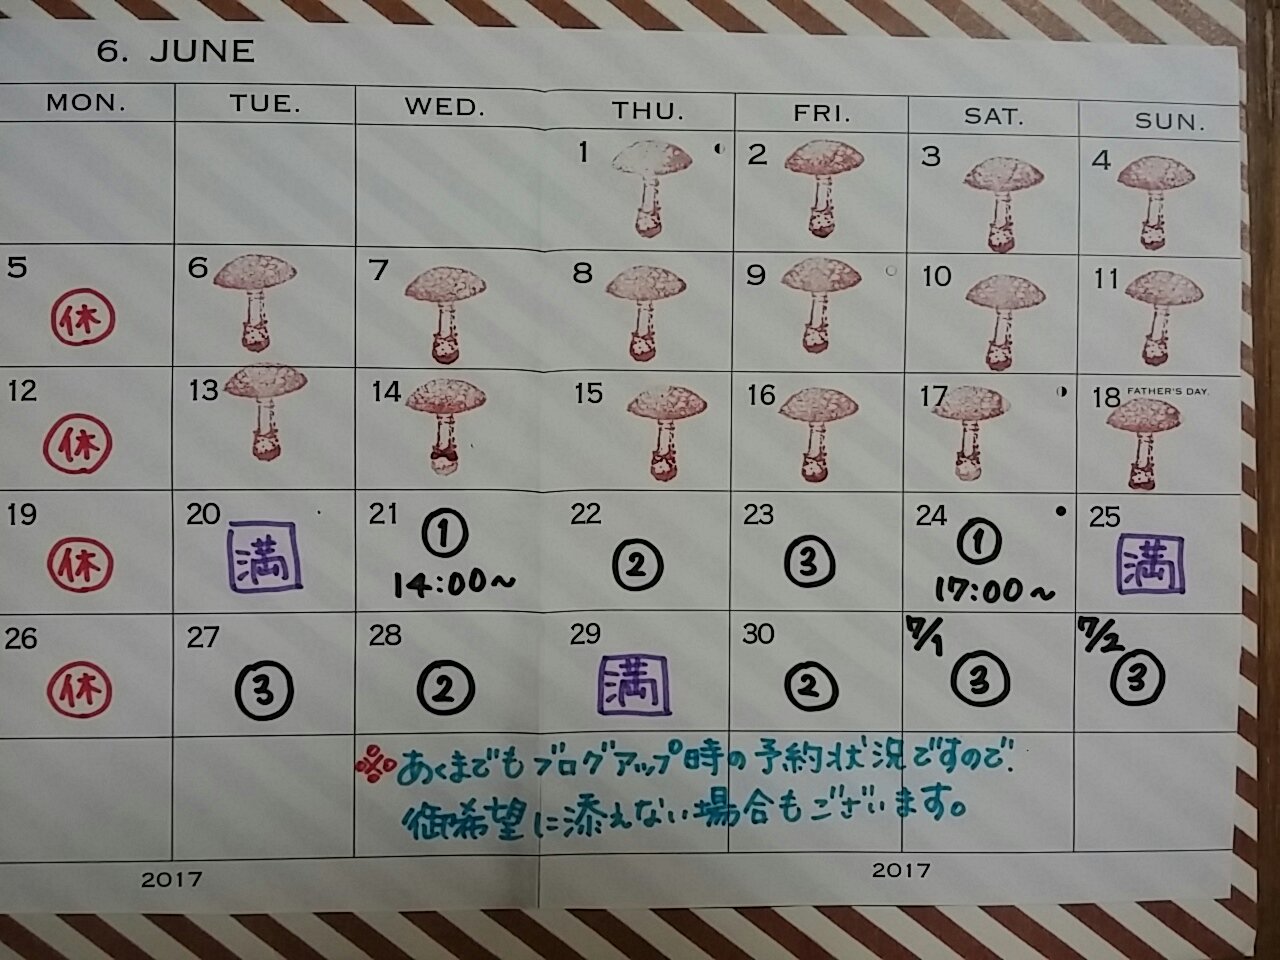 6. JUNE
MON. TUE. WED. THU. FRI. SAT. SUN.
1 2 3 4
5 6 7 8 9 10 11
休
12 13 14 15 16 17 18 FATHER'S DAY.
休
19 20 21 22 23 24 25
休 満 ① ② ③ ① 満
14:00～ 17:00～
26 27 28 29 30 7/1 7/2
休 ③ ② 満 ② ③ ③
※あくまでもブログアップ時の予約状況ですので、
御希望に添えない場合もございます。
2017 2017